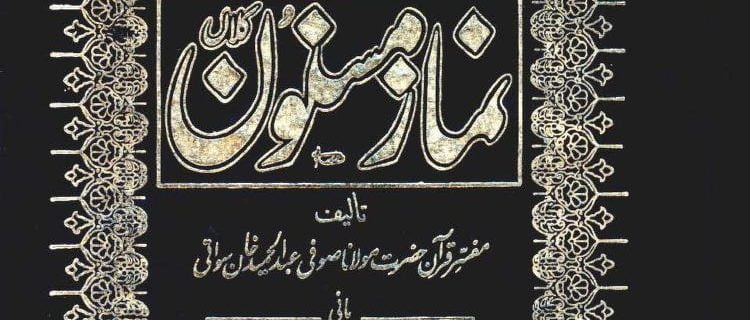 نماز مسنون کلاں
تالیف
مفسرِ قرآن حضرت مولانا صوفی عبدالحمید خان سواتی
بانی